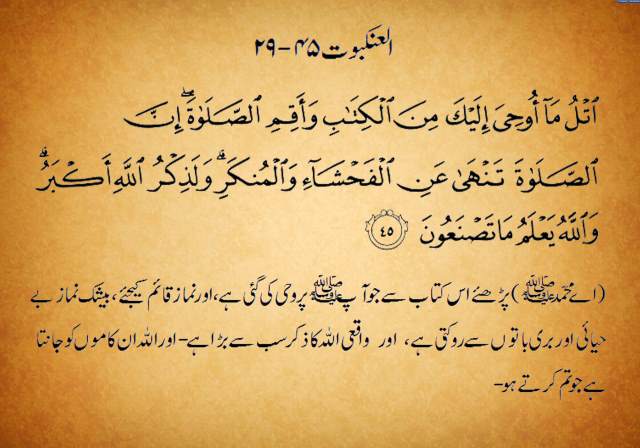 العنکبوت ۴۵-۲۹
ٱتْلُ مَآ أُوحِىَ إِلَيْكَ مِنَ ٱلْكِتَـٰبِ وَأَقِمِ ٱلصَّلَوٰةَ ۖ إِنَّ
ٱلصَّلَوٰةَ تَنْهَىٰ عَنِ ٱلْفَحْشَآءِ وَٱلْمُنكَرِ ۗ وَلَذِكْرُ ٱللَّهِ أَكْبَرُ ۗ
وَٱللَّهُ يَعْلَمُ مَا تَصْنَعُونَ ٤٥
(اے محمد ﷺ) پڑھئے اس کتاب سے جو آپ ﷺ پر وحی کی گئی ہے، اور نماز قائم کیجئے، بیشک نماز بے
حیائی اور بری باتوں سے روکتی ہے، اور واقعی اللہ کا ذکر سب سے بڑا ہے- اور اللہ ان کاموں کو جانتا
ہے جو تم کرتے ہو-